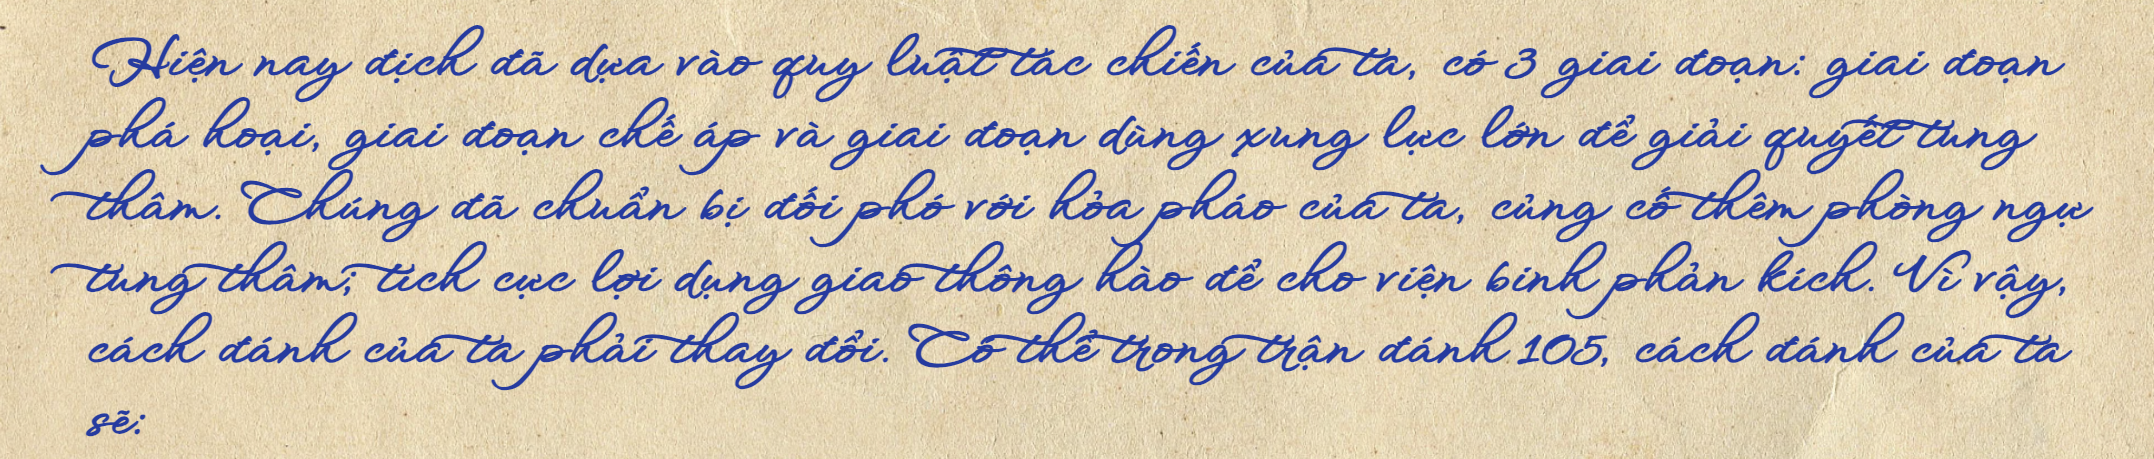 Hiện nay địch đã dựa vào quy luật tác chiến của ta, có 3 giai đoạn: giai đoạn
phá hoại, giai đoạn chế áp và giai đoạn dùng xung lực lớn để giải quyết tung
thâm. Chúng đã chuẩn bị đối phó với hỏa pháo của ta, củng cố thêm phòng ngự
tung thâm; tích cực lợi dụng giao thông hào để cho viện binh phản kích. Vì vậy,
cách đánh của ta phải thay đổi. Có thể trong trận đánh 105, cách đánh của ta
sẽ: